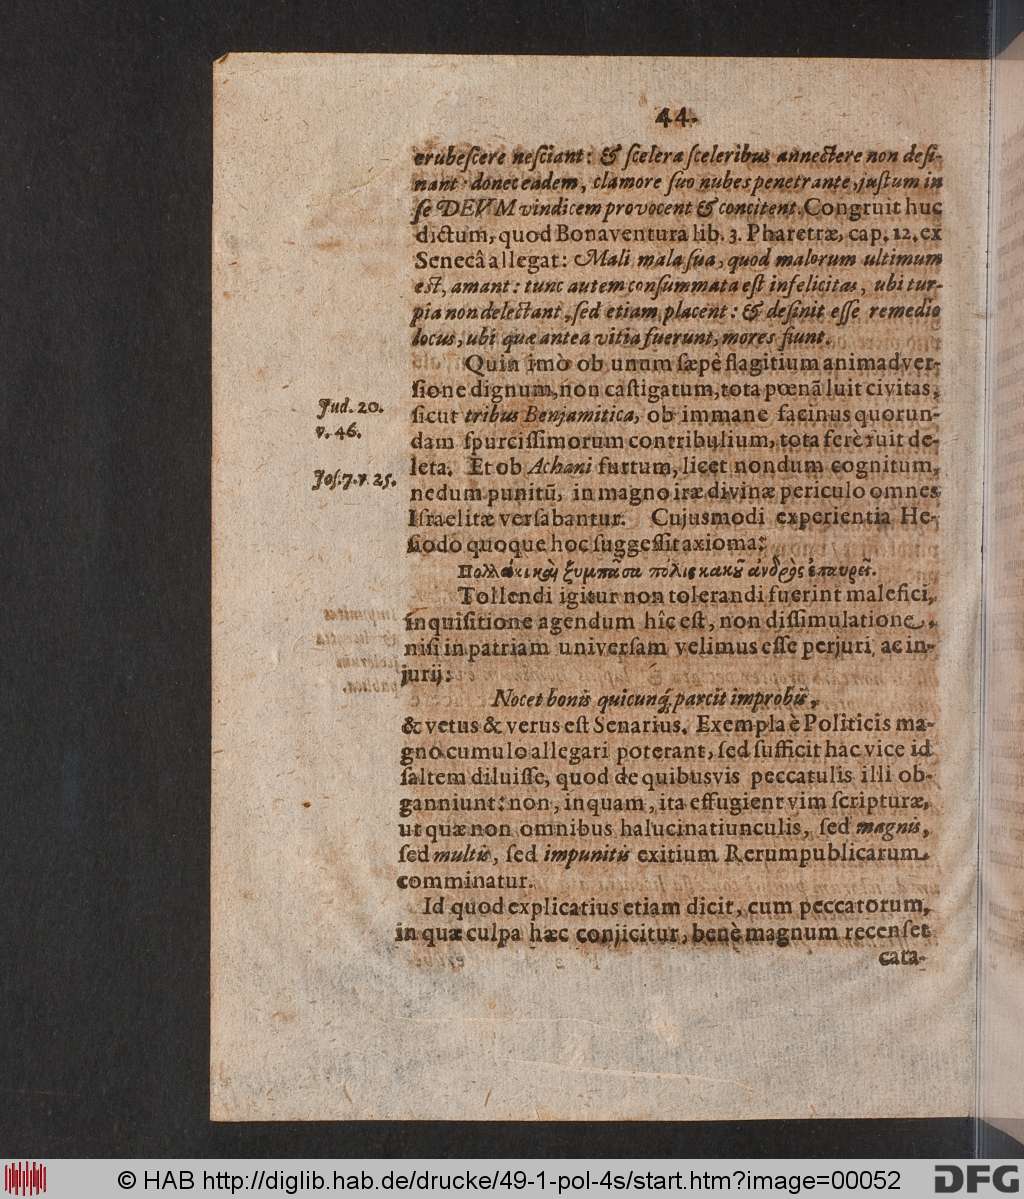 44.
erubeſcere neſciant: & ſcelera ſceleribus annectere non deſi-
nant donec eadem, clamore ſuo nubes penetrante, juſtum in
ſe DEUM vindicem provocent & concitent. Congruit huc
dictum, quod Bonaventura lib. 3. Pharetræ, cap. 12. ex
Senecâ allegat: Mali mala ſua, quod malorum ultimum
eſt, amant: tunc autem conſummata eſt infelicitas, ubi tur-
pia non delectant, ſed etiam placent: & deſinit eſſe remedio
locus, ubi quæ antea vitia fuerunt, mores fiunt.
Quin imò ob unum ſæpè flagitium animadver-
ſione dignum, non caſtigatum, tota pœnã luit civitas,
ſicut tribus Benjamitica, ob immane facinus quorun-
Jud. 20.
v. 46.
dam ſpurciſſimorum contribulium, tota ferè ruit de-
leta. Et ob Achani furtum, licet nondum cognitum,
Joſ. 7. v 25.
nedum punitũ, in magno iræ divinæ periculo omnes
Iſraelitæ verſabantur. Cujusmodi experientia He-
ſiodo quoque hoc ſuggeſſit axioma:
Πολλάκι καὶ ξυμπᾶσα πόλις κακοῦ ἀνδρὸς ἐπαυρεῖ.
Tollendi igitur non tolerandi fuerint malefici,
inquiſitione agendum hîc eſt, non diſſimulatione,
niſi in patriam univerſam velimus eſſe perjuri, ac in-
jurij:
Nocet bonis quicunq́; parcit improbis,
& vetus & verus eſt Senarius. Exempla è Politicis ma-
gno cumulo allegari poterant, ſed ſufficit hâc vice id
ſaltem diluiſſe, quod de quibusvis peccatulis illi ob-
ganniunt: non, inquam, ita effugient vim ſcripturæ,
ut quæ non omnibus halucinatiunculis, ſed magnis,
ſed multis, ſed impunitis exitium Rerumpublicarum
comminatur.
Id quod explicatius etiam dicit, cum peccatorum,
in quæ culpa hæc conjicitur, benè magnum recenſet
cata-
© HAB http://diglib.hab.de/drucke/49-1-pol-4s/start.htm?image=00052
DFG